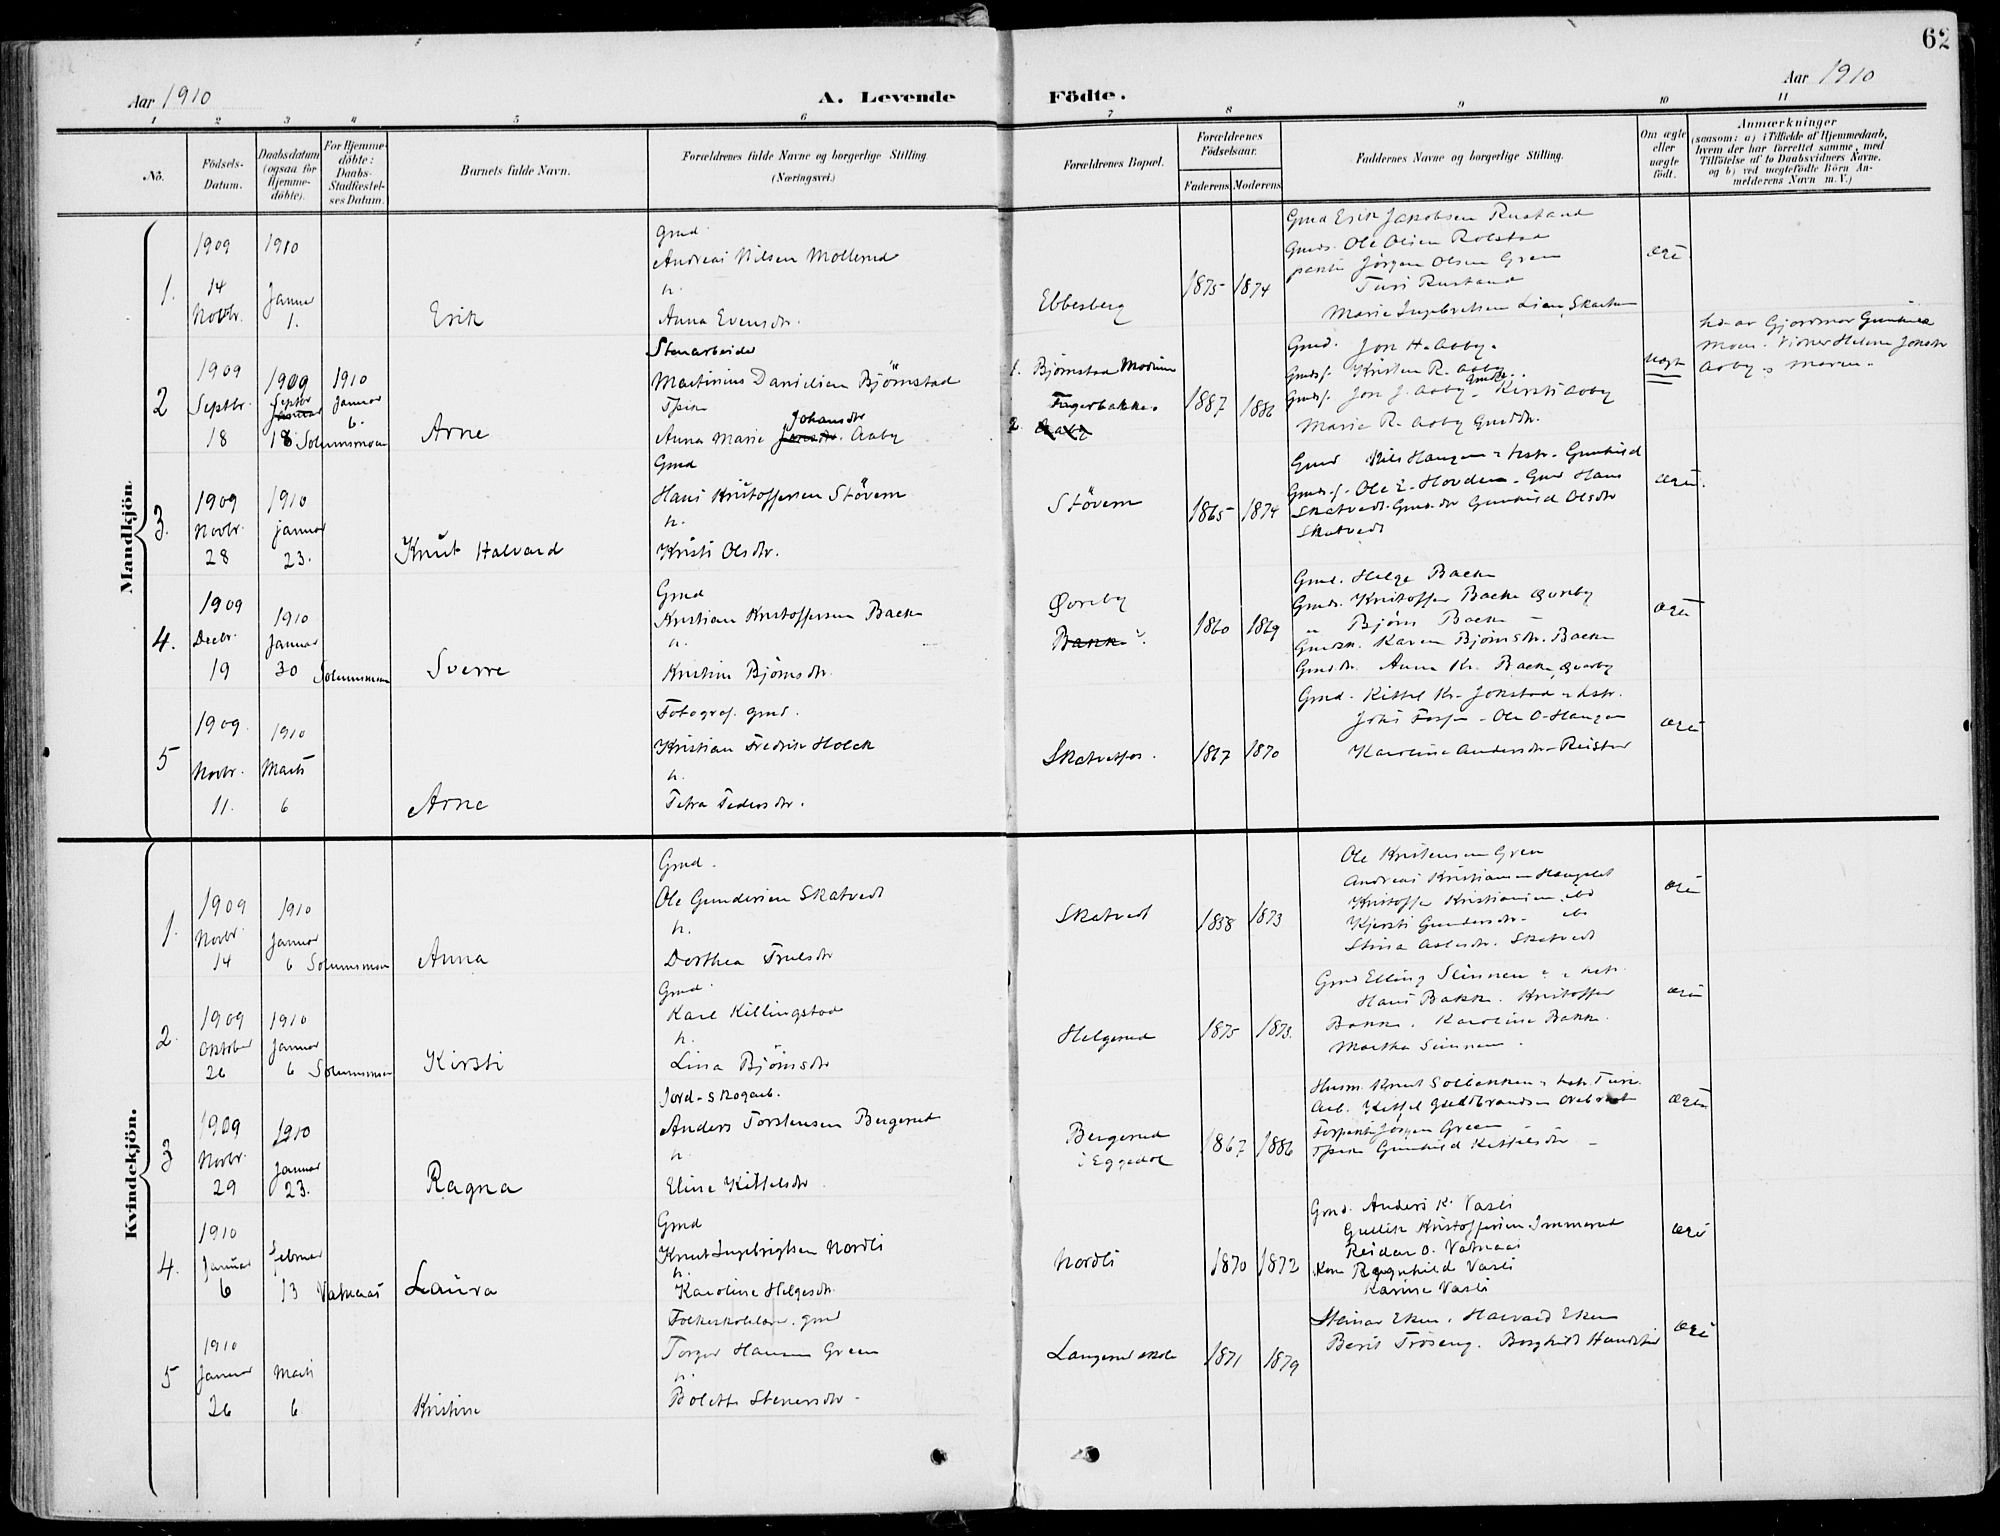 62
Aar 1910
A. Levende Födte.
Aar 1910
1 2 3 4 5 6 7 8 9 10 11
No.
Födsels-Datum.
Daabsdatum (ogsaa for Hjemme-döbte).
For Hjemme-döbte: Daabs-Stadfæstel-ses Datum.
Barnets fulde Navn.
Forældrenes fulde Navne og borgerlige Stilling (Næringsvei.)
Forældrenes Bopæl.
Forældrenes Födselsaar.
Faderens Moderens
Faddernes Navne og borgerlige Stilling.
Om ægte eller uægte födt.
Anmærkninger
(saasom: a) i Tilfælde af Hjemmedaab,
hvem der har forrettet samme, med
Tilföielse af to Daabsvidners Navne,
og b) ved uegtefödte Börn An-
melderens Navn m. V.)
Mandkjön.
1.
1909
14
Novbr.
1910
Januar
1.
Erik
Gmd.
Andreas Nilsen Mollerud
h.
Anna Evensdr.
Ebbesberg
1875 1874
Gmd Erik Jakobsen Rustand
Gmds. Ole Olsen Rolstad
Jørgen Olsen Green
Turi Rustand
Marie Ingebretsen Lien, Skartum
ægte
2
1909
Septbr.
18
1909
Septbr
Januar
18
1910
Januar
6.
Solumsmoen
Arne
Stenarbeider
Martinius Danielsen Björnstad
Tpike
Johansdr
Anna Marie Jonsdr. Aaby
1. Bjørnstad Modum
Fagerbakke.
2 Aaby
1887 1886
Gmd. Jon H. Aaby.
Gmds. Kristen R. Aaby
Gmds. Jon J. Aaby Kirsti Aaby
Marie R. Aaby Gmddtr.
uægt
hd. av Gjordmor Gunhild
Moen. Vidner Helene Jonsdr
Aaby & Maren
3.
1909
Novbr.
28
1910
Januar
23.
Knut Halvard
Gmd
Hans Kristoffersen Stövern
h.
Kristi Olsdtr.
Stövern
1865 1874
Gmd Nils Haugen & hstr. Gunhild
Gmds. Ole E. Hovden Gmd Hans
Skatvedt. Gmd.dr Gunhild Olsdtr
Skatvedt
ægte.
4.
1909
Decbr.
19
1910
Januar
30 Solumsmoen
Sverre
Gmd
Kristian Kristoffersen Backe
h.
Kristine Björnsdtr.
Øvreby
Bakke
1860 1869
Gmd. Helge Backe
Gmds. Kristoffer Backe Øvreby
" Bjørn Backe
Karen Björnsdtr. Backe
Gmd.dtr. Anna Kr. Backe Øvreby
ægte
5
1909.
Novbr.
11.
1910
Marts
6
Arne
Fotograf. gmd.
Kristian Fredrik Holck
h.
Petra Pedersdtr.
Skatvetfos.
1867 1870
Gmd. Kittel Kr. Jonstad & hstr.
Ole O. Haugen
Karoline Andersdtr. Reistad
ægte
Kvindekjön.
1.
1909
Novbr.
14
1910
Januar
6 Solumsmoen
Anna
Gmd.
Ole Gundersen Skatvedt
h.
Dorthea Trulsdtr
Skatvedt
1838 1873
Ole Kristensen Green
Andreas Kristiansen
Kristoffer Kristiansen ibd
Kjersti Gundersdtr. ibd
Stina Aslesdtr. Skatvedt
ægte
2.
1909
Oktober
26
1910
Januar
6 Solumsmoen
Kirsti
Gmd.
Karl Killingstad
h.
Lina Björnsdtr
Helgerud
1875 1873.
Gmd Elling Slinnen & hstr.
Hans Bakke. Kristoffer
Bakke. Karoline Bakke.
Martha
ægte
3
1909
Novbr.
29
1910
Januar
23.
Ragna
Jord- skogarb.
Anders Torstensen Bergerud
h.
Eline Kittelsdtr
Bergerud
i Eggedal
1867 1886
Husm. Knut Solbakken & hstr. Turi.
Arb. Kittel Guldbrandsen
Jørgen Green
Tpike Gunhild Kittelsdtr
ægte
4.
1910
Januar
6
Februar
13 Vatnaas
Laura
Gmd
Knut Ingebrigtsen Nordli
h.
Karoline Helgesdtr.
Nordli
1870 1872
Gmd. Anders K. Vasli
Gullik Kristoffersen Immerud
Reidar O. Vatnaas
Kone Ragnhild Vasli
Karine Vasli
ægte
5
1910
Januar
26
Marts
6
Kristine
Folkeskolelærer. gmd
Torger Hansen Green
h.
Bolette Stenersdtr
Langerud skole
1871 1879
Steinar Eken. Halvard Eken
Berit Fröseng. Borghild
ægte